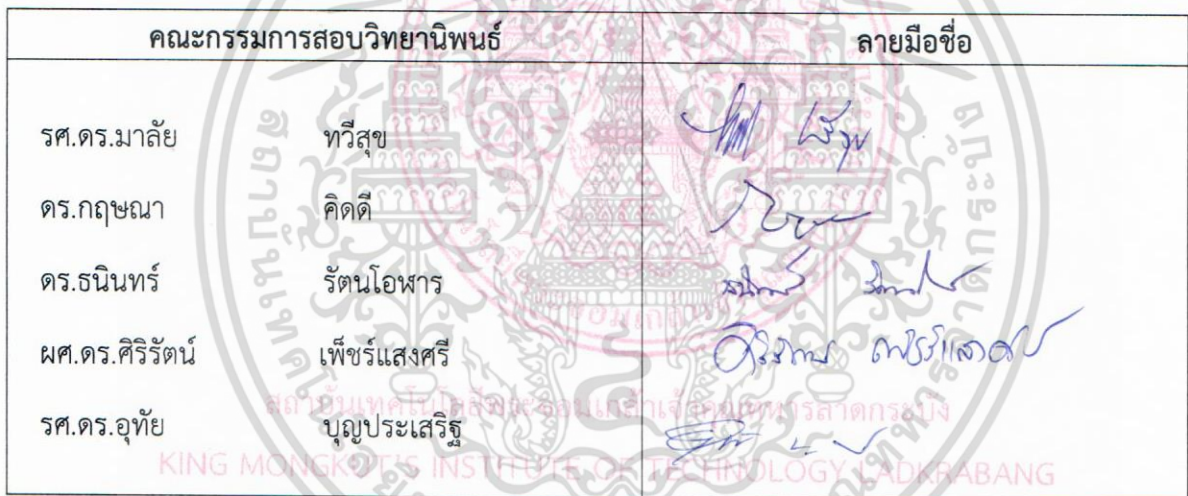 คณะกรรมการสอบวิทยานิพนธ์ ลายมือชื่อ
รศ.ดร.มาลัย ทวีสุข
ดร.กฤษณา คิดดี
ดร.ธนินทร์ รัตนโอฬาร
ผศ.ดร.ศิริรัตน์ เพ็ชร์แสงศรี
รศ.ดร.อุทัย บุญประเสริฐ
สถาบันเทคโนโลยีพระจอมเกล้าเจ้าคุณทหารลาดกระบัง
KING MONGKUT'S INSTITUTE OF TECHNOLOGY LADKRABANG